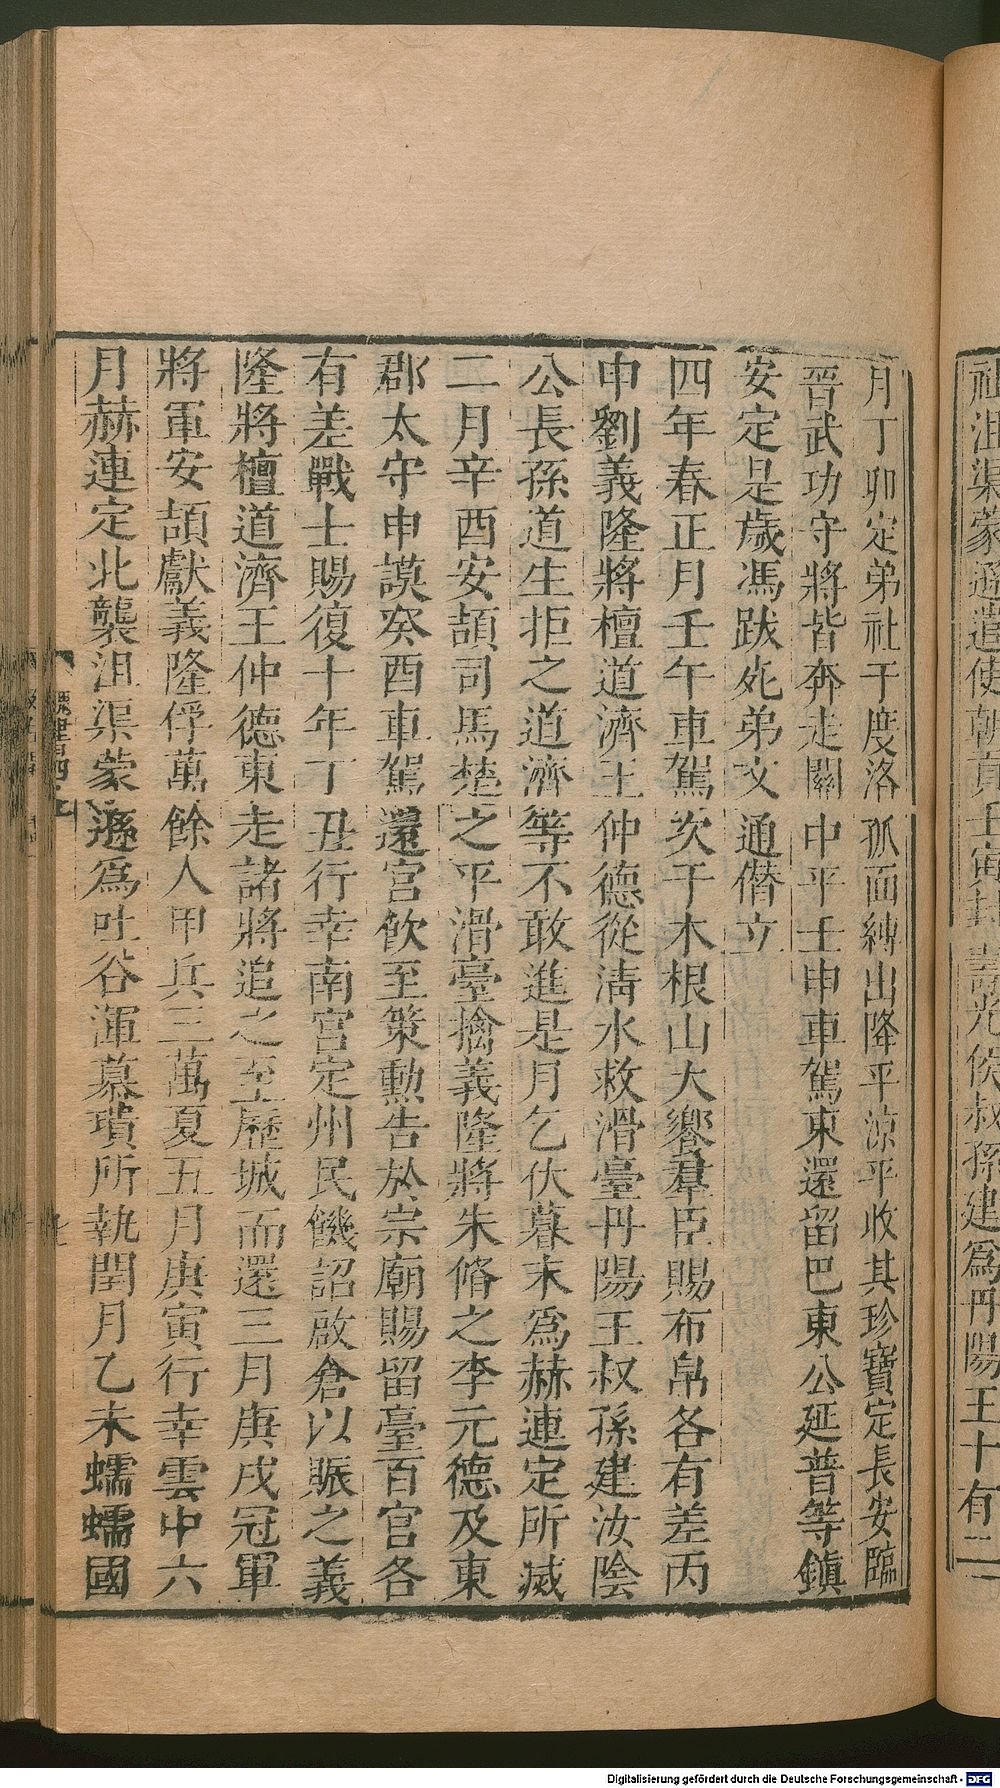 社沮渠蒙遜遣使朝貢壬寅封壽光侯叔孫建爲丹陽王十有二
月丁卯定弟社干度洛孤面縛出降平涼平收其珍寶定長安臨
晉武功守將皆奔走關中平壬申車駕東還留巴東公延普等鎮
安定是歲馮跋死弟文通僭立
四年春正月壬午車駕次于木根山大饗羣臣賜布帛各有差丙
申劉義隆將檀道濟王仲德從淸水救滑臺丹陽王叔孫建汝陰
公長孫道生拒之道濟等不敢進是月乞伏暮末爲赫連定所滅
二月辛酉安頡司馬楚之平滑臺擒義隆將朱脩之李元德及東
郡太守申謨癸酉車駕還宮飲至策勳告於宗廟賜留臺百官各
有差戰士賜復十年丁丑行幸南宮定州民饑詔啟倉以賑之義
隆將檀道濟王仲德東走諸將追之至歷城而還三月庚戌冠軍
將軍安頡獻義隆俘萬餘人甲兵三萬夏五月庚寅行幸雲中六
月赫連定北襲沮渠蒙遜爲吐谷渾慕璝所執閏月乙未蠕蠕國
魏書四上
七
Digitalisierung gefördert durch die Deutsche Forschungsgemeinschaft - DFG